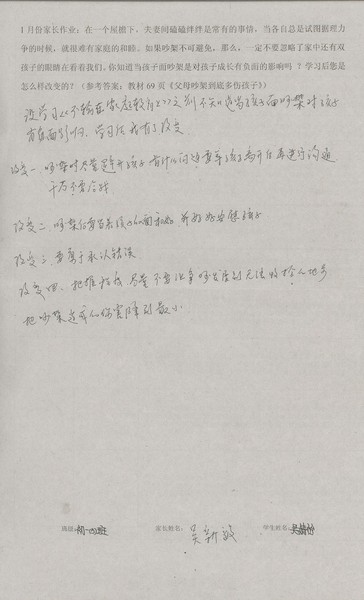 1月份家长作业:在一个屋檐下,夫妻间磕磕绊绊是常有的事情,当各自总是试图据理力
争的时候,就很难有家庭的和睦。如果吵架不可避免,那么,一定不要忽略了家中还有双
孩子的眼睛在看着我们。你知道当孩子面吵架是对孩子成长有负面的影响吗?学习后您是
怎么样改变的?(参考答案:教材69页《父母吵架到底多伤孩子》)
没学习《不输在家庭教育上》之前不知道当孩子面吵架对孩子
有负面影响。学习后我有了改变
改变一.吵架时尽量避开孩子 有什么问题要等孩子离开后再进行沟通
千万不要冷战
改变二.吵架后要当着孩子的面和好 并抱抱安慰孩子
改变三.要勇于承认错误
改变四.尽量不要让争吵发展到无法收拾的地步
把吵架造成的伤害降到最小
班级:初一(3)班 家长姓名:吴新敏 学生姓名: